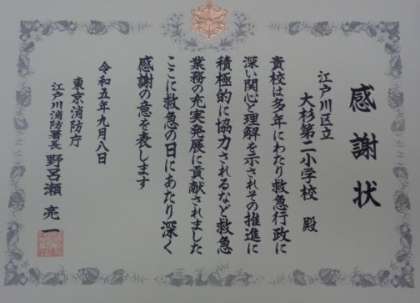 感謝状
江戸川区立
大杉第二小学校 殿
貴校は多年にわたり救急行政に
深い関心と理解を示されその推進に
積極的に協力されるなど救急
業務の充実発展に貢献されました
ここに救急の日にあたり深く
感謝の意を表します
令和五年九月八日
東京消防庁
江戸川消防署長 野呂瀬 亮一